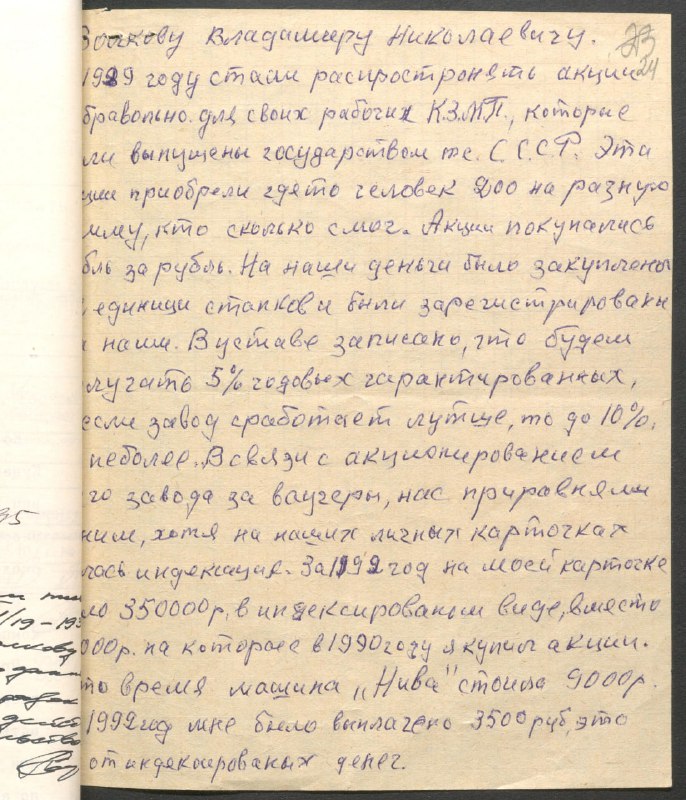 Волкову Владимиру Николаевичу.
24
1989 году стали распространять акции
бравольно для своих рабочих К.З.М.П., которые
ли выпущены государством т.е. С.С.С.Р. Эти
ции приобрели гдето человек 200 на разную
мму, кто сколько смог. Акции покупались
бль за рубль. На наши деньги было закуплены
единици станков и были зарегистрированы
наши. В уставе записано, что будем
лучать 5% годовых гарантированных,
если завод сработает лутше, то до 10%,
неболее. В связи с акционированием
го завода за ваучеры, нас приравняли
ним, хотя на наших личных карточках
лась индексация. За 1992 год на моей карточке
ло 350000р, в индексированом виде, вместо
000р. на которые в 1990 году я купил акции.
то время машина „Нива" стоила 9000р.
1992 год мне было выплачено 3500 руб, это
от индексированых денег.
35